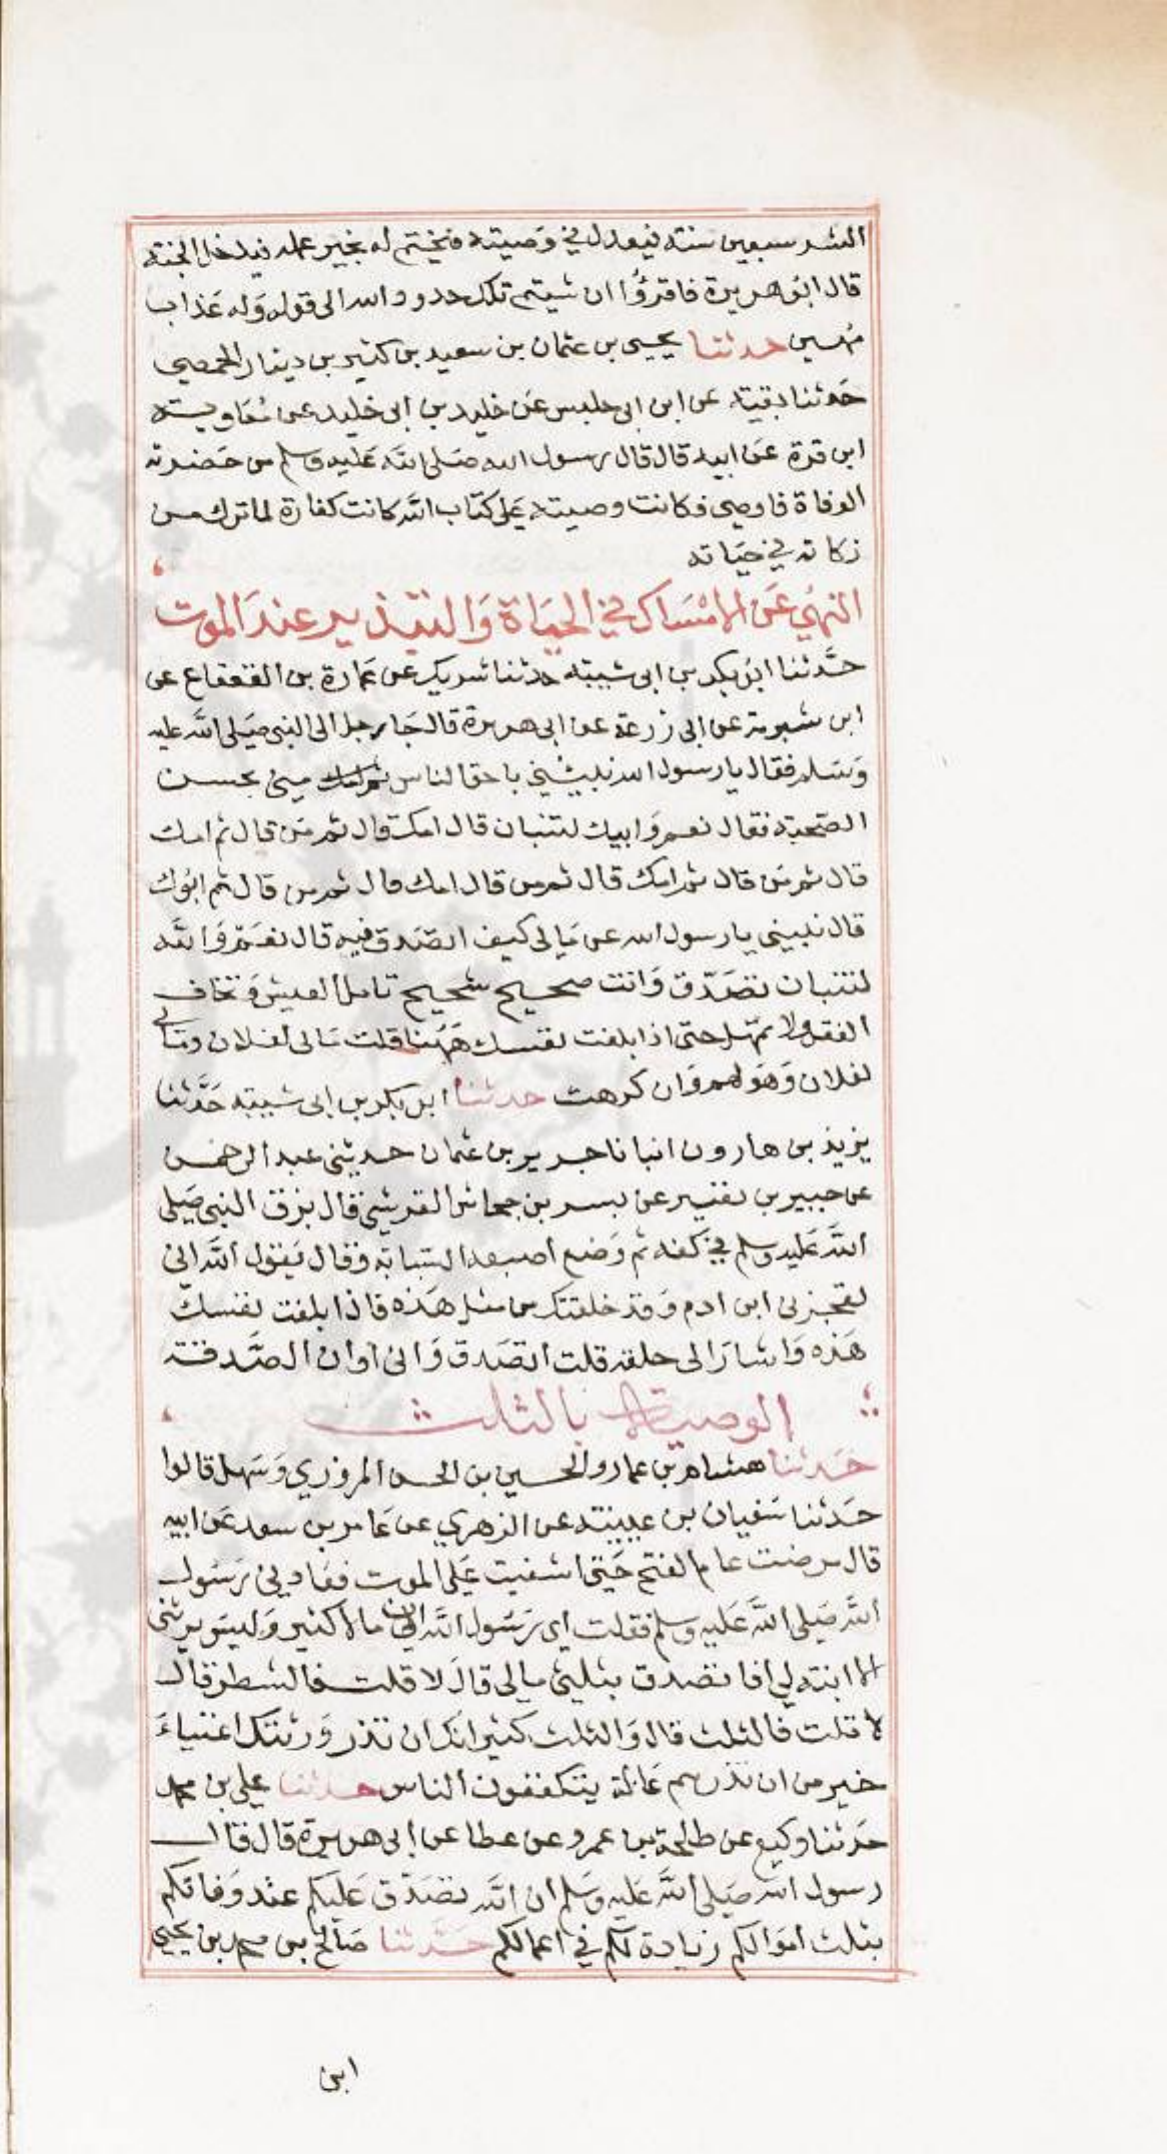 الشر سبعين سنة فيعدل في وصيته فيختم له بخير عمله فيدخل الجنة
قال ابو هريرة فاقرؤا ان شيتم تلك حدود الله الى قوله وله عذاب
مهين حدثنا يحيى بن عثمان بن سعيد بن كثير بن دينار الحمصي
حدثنا بقية عن ابن ابي حلبس عن خليد بن ابي خليد عن معاوية
ابن قرة عن ابيه قال قال رسول الله صَلى الله عَليه وسلم من حضرته
الوفاة فاوصى فكانت وصيته عَلى كتاب الله كانت كفارة لما ترك من
زكاته في حيَاته
النهي عَن الامسَاك في الحيَاة وَالتبذير عندَ الموت
حدَّثنا ابو بكر بن ابي شيبة حدثنا شريك عن عمَارة بن القعقاع عن
ابن شبرمة عن ابي زرعة عن ابي هريرة قال جَا رجل الى النبي صَلى الله عليه
وسَلم فقال يا رسول الله نبيني باحق الناس مني بحسن
الصحبة فقال نعم وَابيك لتنبان قال امك قال ثم من قال ثم امك
قال ثم من قال ثم امك قال ثم من قال امك قال ثم من قال ثم ابوك
قال نبيني يا رسول الله عن مَالي كيف اتصدق فيه قال نعَم وَالله
لتنبان تصَدّق وَانت صحيح شحيح تامل العيش وَتخاف
الفقر ولا تمهل حتى اذا بلغت نفسك هَهُنا قلت مَالي لفلان ومَالي
لفلان وَهوَ لهم وَان كرهت حدثنا ابو بكر بن ابي شيبة حَدَّثنا
يزيد بن هارون انبانا جرير بن عثمان حدثني عبد الرحمن
عن جبير بن نفير عن بسر بن جحاش القرشي قال بزق النبي صَلى
الله عَليه وسلم في كفه ثم وَضع اصبعه السّبابة وقال يَقول الله اني
تعجزني ابن ادم وَقد خلقتك من مثل هَذه فاذا بلغت نفسك
هَذه وَاشارَ الى حلقه قلت اتصَدق وَاني اوان الصَّدقة
الوصية بالثلث
حَدثنا هشام بن عمار والحسين بن الحسن المروزي وَسَهل قالوا
حدَثنا سَفيان بن عيينة عن الزهري عن عَامر بن سعد عَن ابيه
قال مرضت عام الفتح حَتى اشفيت عَلى الموت فعَادني رَسَول
الله صَلى الله عَليه وسلم فقلت اي رَسُول الله ان لي مالا كثير وَليسَ يرثني
الا ابنة لي افاتصدق بثلثي مالي قالَ لا قلت فالشطر قال
لا قلت فالثلث قال وَالثلث كثير انك ان تذر وَرثتك اغنياءَ
خير من ان تذرهم عَالة يتكففون الناس حدثنا علي بن محمد
حدَثنا وكيع عن طلحة بن عمرو عن عطا عن ابي هريرة قال قال
رسول الله صَلى الله عَليه وسَلم ان الله تصَدّق عَليكم عند وَفاتكم
بثلث اموَالكم زيادة لكم في اعمالكم حَدثنا صَالح بن محمد بن يحيى
ابن